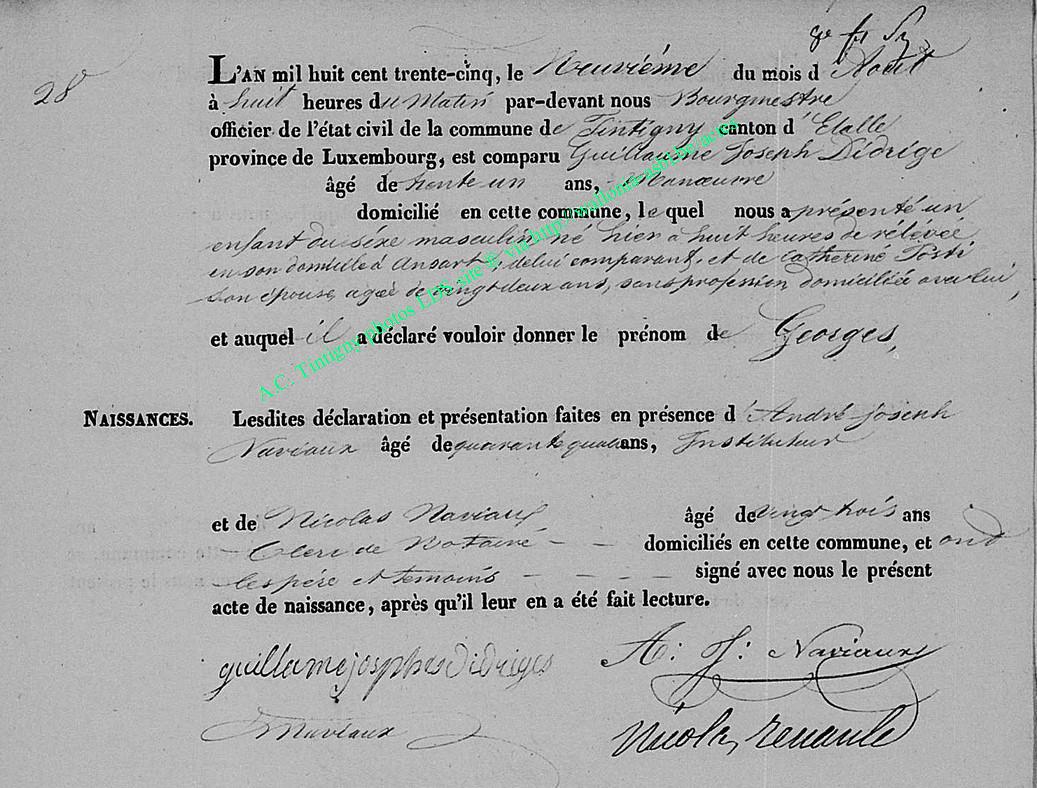 28
L'AN mil huit cent trente-cinq, le Neuvième du mois d'Août
à huit heures du Matin par-devant nous Bourgmestre
officier de l'état civil de la commune de Tintigny canton d'Etalle
province de Luxembourg, est comparu Guillaume Joseph Didrige
âgé de trente un ans, Manœuvre
domicilié en cette commune, lequel nous a présenté un
enfant du séxe masculin né hier à huit heures de rélévée
en son domicile à Ansart, delui comparant, et de Catherine Tosti
son épouse, agée de vingt-deux ans, sans profession domiciliée avec lui,
et auquel il a déclaré vouloir donner le prénom de Georges,
NAISSANCES. Lesdites déclaration et présentation faites en présence d'André-Joseph
Naviaux âgé de quarante quatre ans, Instituteur
et de Nicolas Naviaux âgé de vingt trois ans
Clerc de Notaire domiciliés en cette commune, et ont
les père et temoins signé avec nous le présent
acte de naissance, après qu'il leur en a été fait lecture.
guillamejosphesdidriges A: J: Naviaux
Naviaux Nicolas renauld
A.C. Tintigny photos LDS site © via http://wallonia-asbl.be/actes